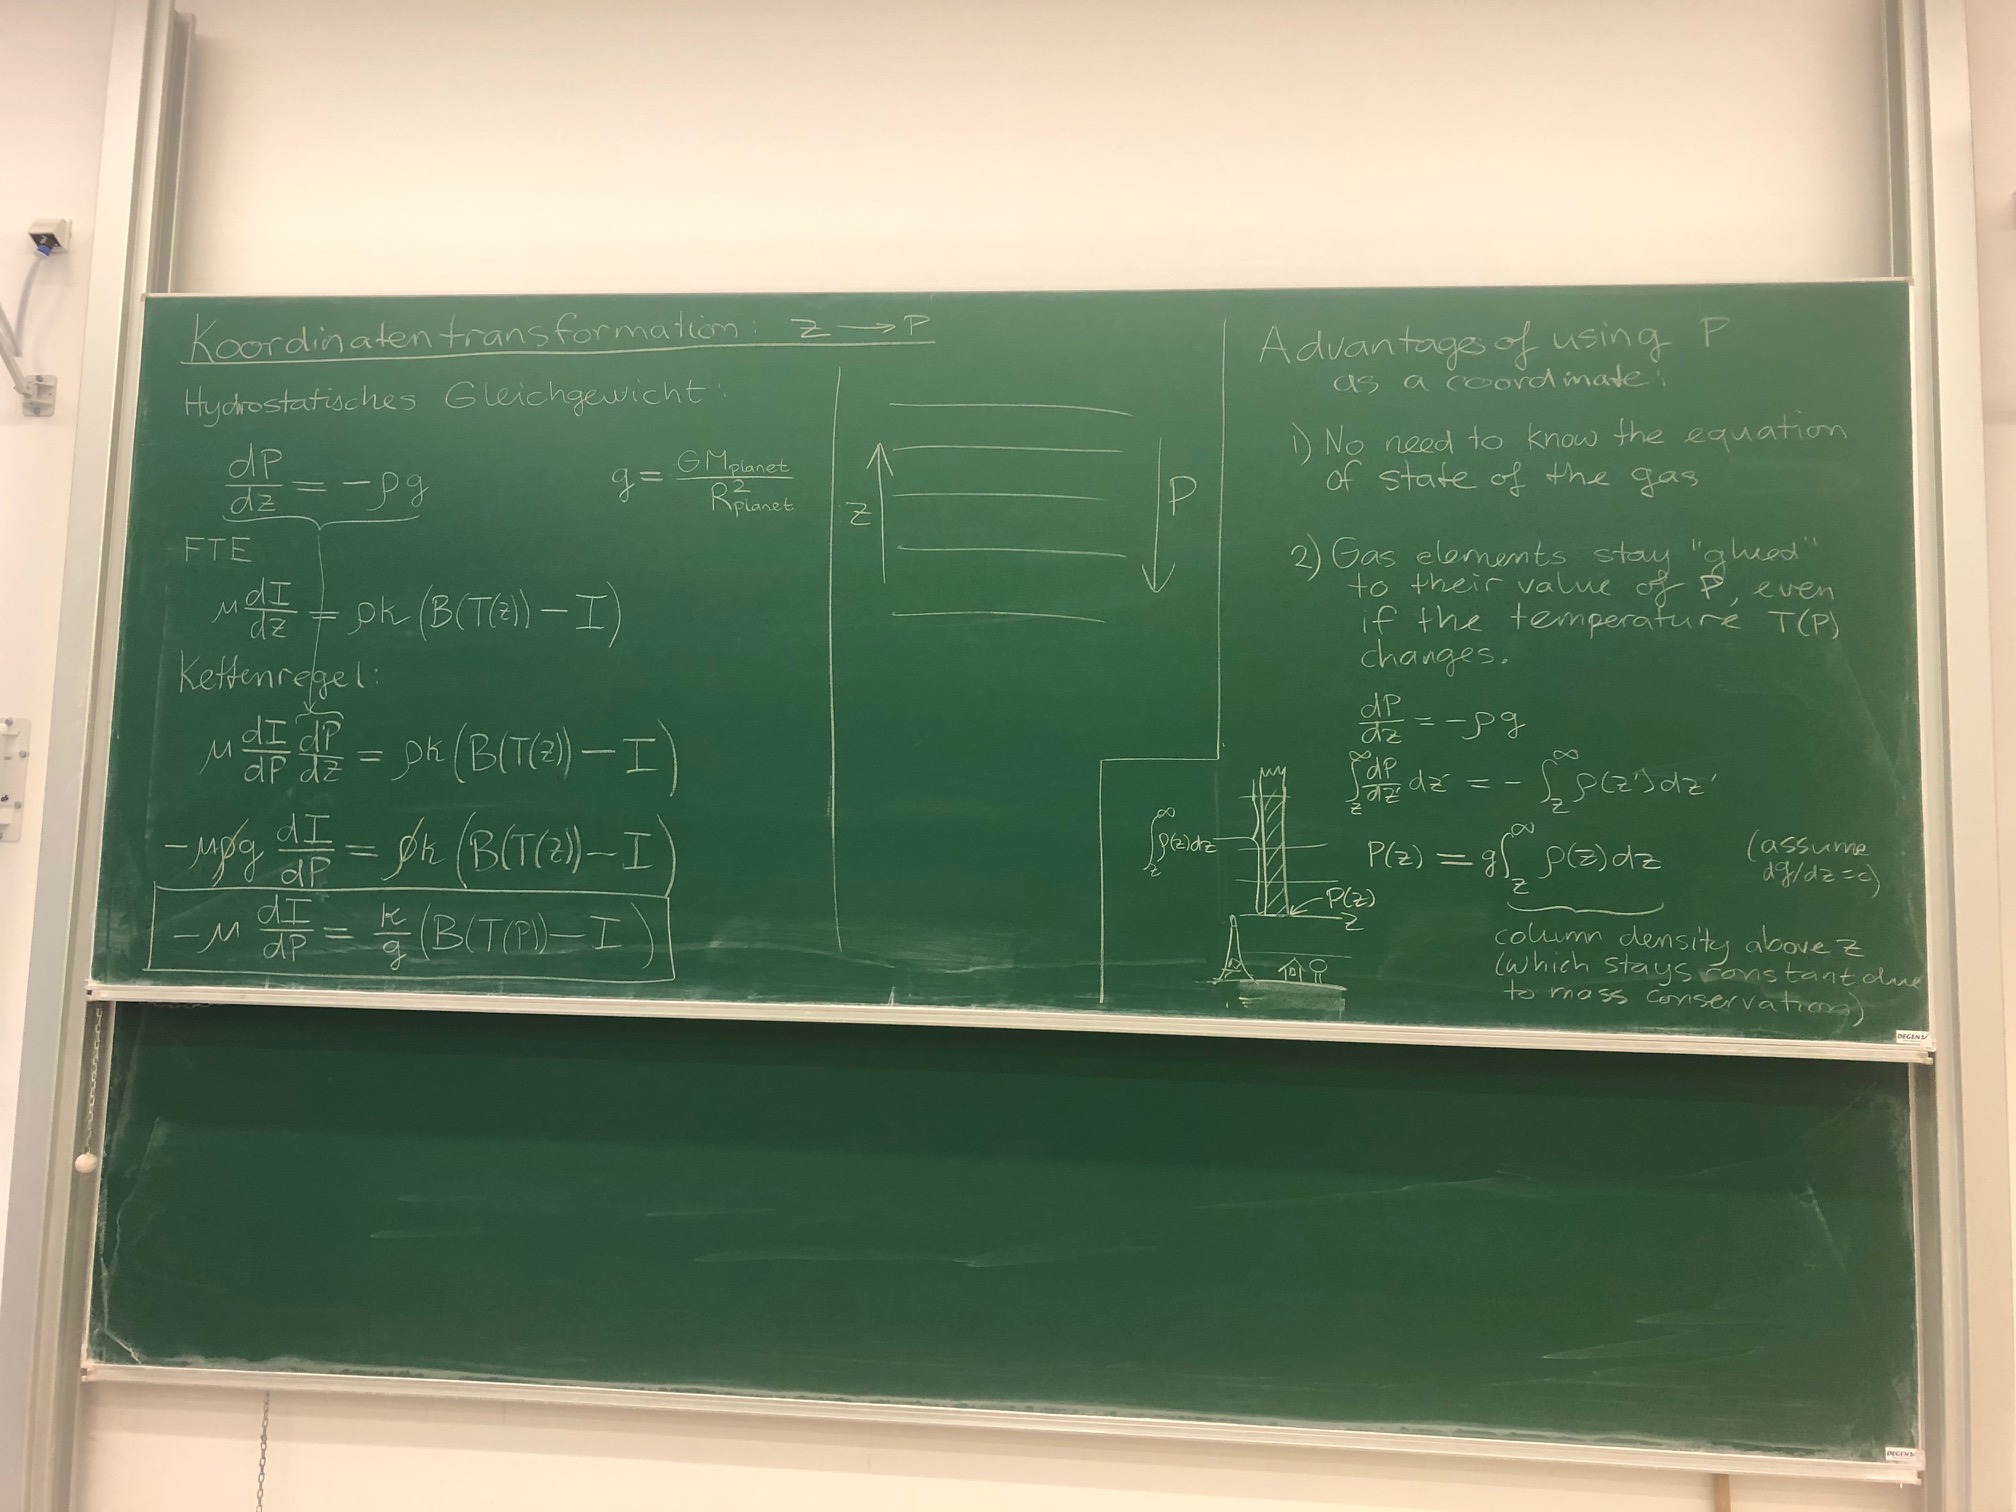 Koordinatentransformation: z → P
Hydrostatisches Gleichgewicht:
dP/dz = -ρg
g = GM_planet / R²_planet
FTE
μ dI/dz = ρκ (B(T(z)) - I)
Kettenregel:
μ dI/dP dP/dz = ρκ (B(T(z)) - I)
-μρg dI/dP = ρκ (B(T(z)) - I)
-μ dI/dP = κ/g (B(T(P)) - I)
z
P
Advantages of using P
as a coordinate:
1) No need to know the equation
of state of the gas
2) Gas elements stay "glued"
to their value of P, even
if the temperature T(P)
changes.
dP/dz = -ρg
∫_z^∞ dP/dz' dz' = - ∫_z^∞ ρ(z')dz'
P(z) = g∫_z^∞ ρ(z)dz
(assume
dg/dz = c)
column density above z
(which stays constant due
to mass conservation)
∫_z^∞ ρ(z)dz
P(z)
z
DEGEN
DEGEN